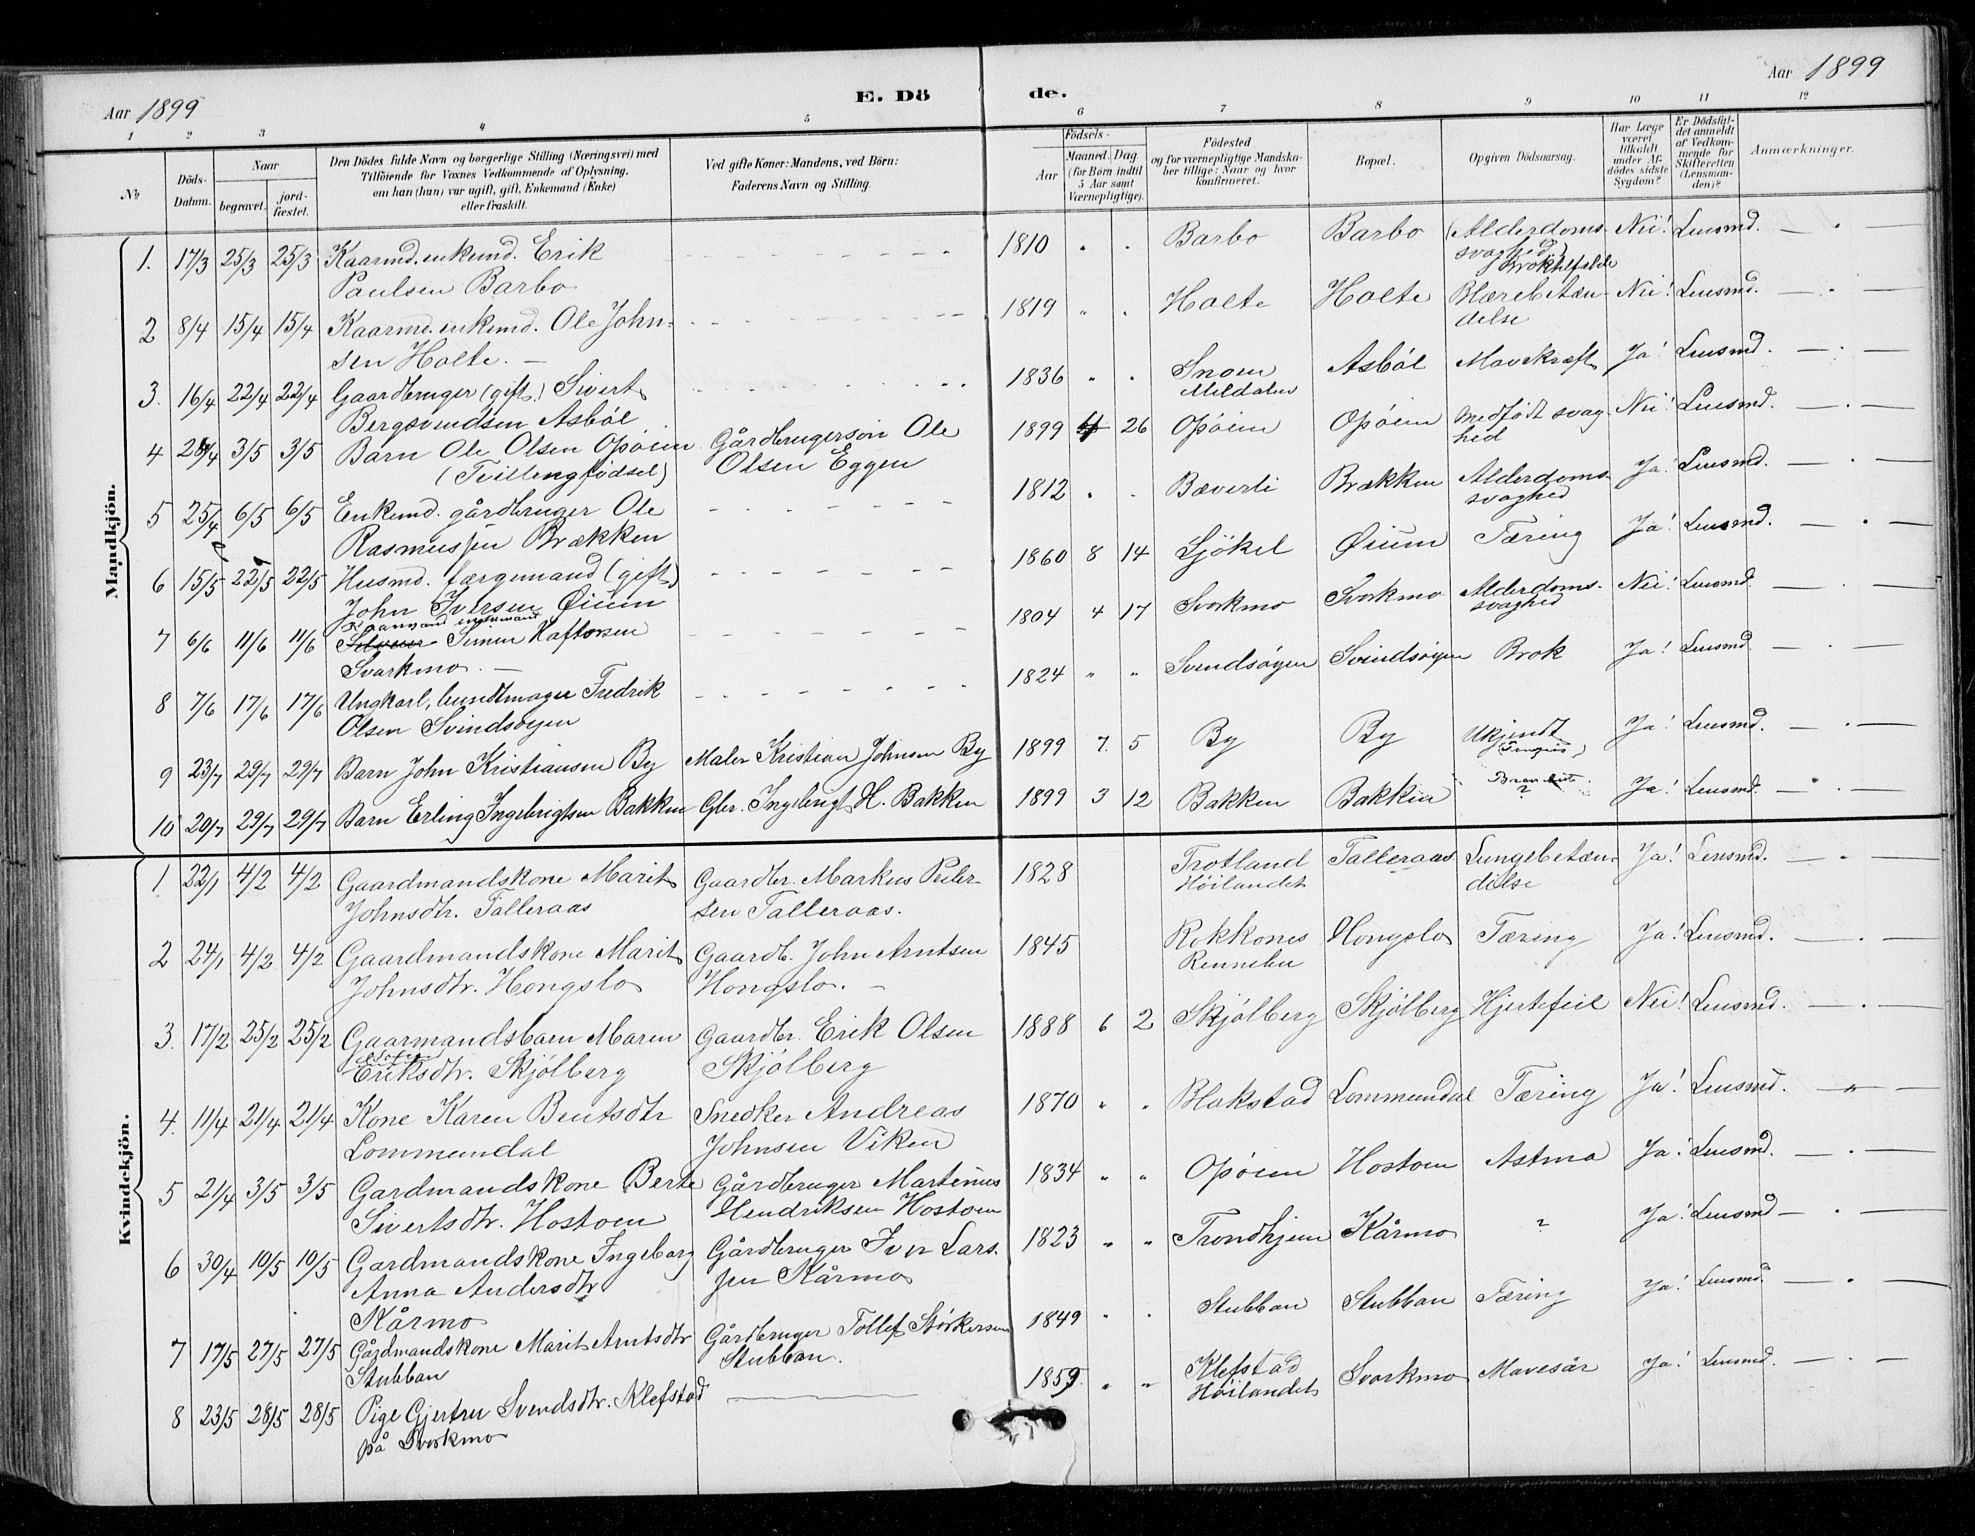 Aar 1899
E. Dö
de.
Aar 1899
1 2 3 4 5 6 7 8 9 10 11 12
No.
Döds-Datum.
Naar
begravet.
jord-fæstet.
Den Dödes fulde Navn og borgerlige Stilling (Næringsvei) med
Tilföiende for Voxnes Vedkommende af Oplysning,
om han (hun) var ugift, gift, Enkemand (Enke)
eller fraskilt.
Ved gifte Koner: Mandens, ved Börn:
Faderens Navn og Stilling.
Födsels-
Aar
Maaned. Dag
(for Börn indtil
5 Aar samt
Værnepligtige).
Födested
og for værnepligtige Mandska-
ber tillige: Naar og hvor
konfirmeret.
Bopæl.
Opgiven Dödsaarsag.
Har Læge
været
tilkaldt
under Af-
dödes sidste
Sygdom?
Er Dödsfal-
det anmeldt
af Vedkom-
mende for
Skifteretten
(Lensman-
den)?
Anmærkninger.
Mandkjön.
1. 17/3 25/3 25/3 Kaarmd. enkemd. Erik 1810 Barbo Barbo (Alderdoms- Nei! Lensmd.
Paulsen Barbo svaghed) Broktilfælde
2 8/4 15/4 15/4 Kaarmd. enkemd. Ole John- 1819 Holte Holte Blærebetæn- Nei! Lensmd.
sen Holte. delse
3. 16/4 22/4 22/4 Gaardbruger (gift) Sivert 1836 Snoen Asböl Mavekræft Ja! Lensmd.
Bergsvendsen Asböl Meldalen
4 3/5 3/5 Barn Ole Olsen Opöien Gårdbrugersön Ole 1899 26 Opöien Opöien Medfödt svag- Nei! Lensmd.
(Tvillingfödsel) Olsen Eggen hed
5 25/4 6/5 6/5 Enkemd. gårdbruger Ole 1812 Bæverli Brækken Alderdoms- Ja! Lensmd.
Rasmussen Brækken svaghed
6 15/5 22/5 22/5 Husmd. færgemand (gift) 1860 8 14 Sjökel Öium Tæring Ja! Lensmd.
John Iversen Öium
7 6/6 11/6 11/6 Kaarmand enkemand Simen Haftorsen 1804 4 17 Svorkmo Svorkmo Alderdoms- Nei! Lensmd.
Svorkmo. svaghed
8 7/6 17/6 17/6 Ungkarl, bundtmager Fredrik 1824 Svindsöyen Svindsöyen Brok Ja! Lensmd.
Olsen Svindsöyen
9 23/7 29/7 29/7 Barn John Kristiansen By Maler Kristian Johnsen By 1899 7. 5 By By Ukjendt Ja! Lensmd.
10 20/7 29/7 29/7 Barn Erling Ingebrigtsen Bakken Gbr. Ingebrigt H. Bakken 1899 3 12 Bakken Bakken ? Ja! Lensmd.
Kvindekjön.
1 22/1 4/2 4/2 Gaardmandskone Marit Gaardbr. Markus Peder- 1828 Trotland Talleraas Lungebetæn- Ja! Lensmd.
Johnsdtr. Talleraas sen Talleraas. Höilandet delse
2 24/1 4/2 4/2 Gaardmandskone Marit Gaardb. John Arntsen 1845 Rokkones Hongslo Tæring Ja! Lensmd.
Johnsdtr. Hongslo Hongslo. Rennebu
3. 17/2 25/2 25/2 Gaarmandsbarn Maren Gaardbr. Erik Olsen 1888 6 2 Skjölberg Skjölberg Hjertefeil Nei! Lensmd.
Eriksdtr. Skjölberg Skjölberg
4. 11/4 21/4 21/4 Kone Karen Bentsdtr Snedker Andreas 1870 Blokstad Lommundal Tæring Ja! Lensmd.
Lommundal Johnsen Viken
5 21/4 3/5 3/5 Gardmandskone Berte Gårdbruger Martinus 1834 Opöien Hostoen Astma Ja! Lensmd.
Sivertsdtr. Hostoen Hendriksen Hostoen
6 30/4 10/5 10/5 Gardmandskone Ingeborg Gårdbruger Iver Lars- 1823 Trondhjem Kårmo ? Ja! Lensmd
Anna Andersdtr sen Kårmo
Kårmo
7 17/5 27/5 27/5 Gårdmandskone Marit Arntsdtr Gårdbruger Tollef Störkersen 1849 Stubban Stubban Tæring Ja! Lensmd.
Stubban Stubban.
8 23/5 28/5 28/5 Pige Gjertru Svendsdtr. Klefstad 1859. Klefstad Svorkmo Mavesår Ja! Lensmd.
på Svorkmo Höilandet